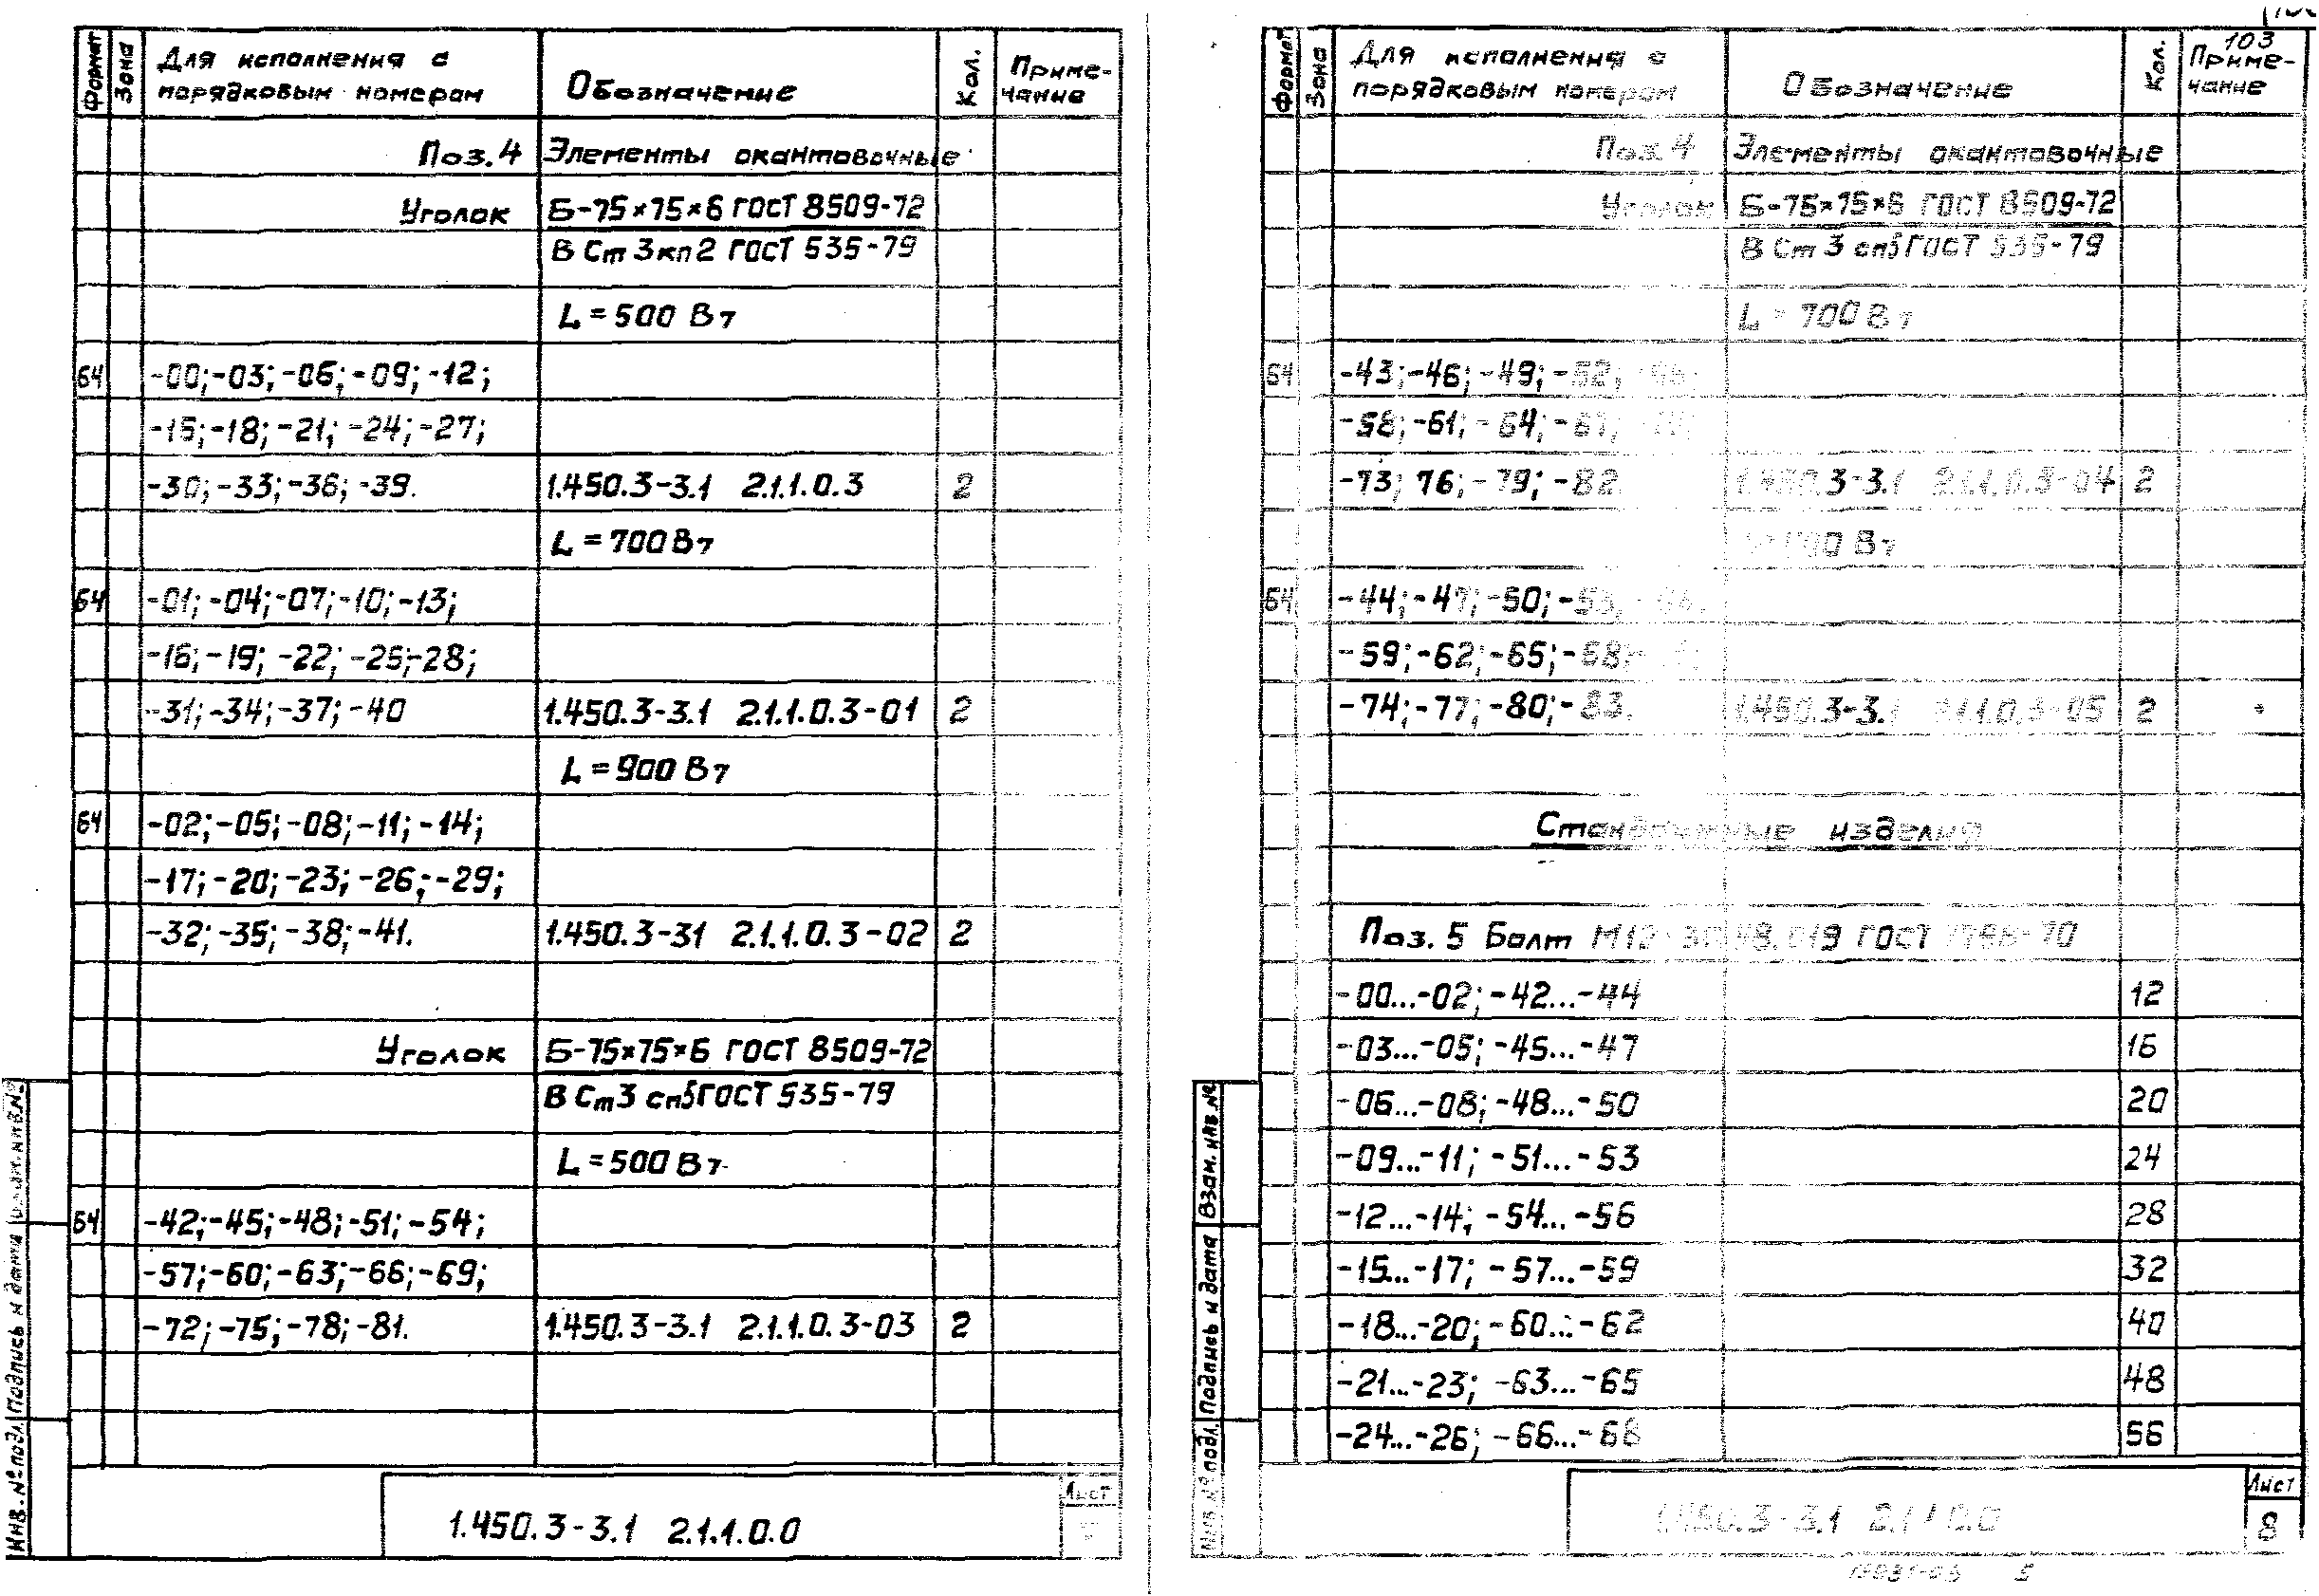 Формат
Зона
Для исполнения с порядковым номером
Обозначение
Кол.
Приме-
чание
Поз.4 Элементы окантовочные
Уголок Б-75×75×6 ГОСТ 8509-72
В Ст 3кп2 ГОСТ 535-79
L = 500 Вт
б4 -00;-03;-06;-09;-12;
-15;-18;-21;-24;-27;
-30;-33;-36;-39. 1.450.3-3.1 2.1.1.0.3 2
L = 700 Вт
б4 -01;-04;-07;-10;-13;
-16;-19;-22;-25;-28;
-31;-34;-37;-40 1.450.3-3.1 2.1.1.0.3-01 2
L = 900 Вт
б4 -02;-05;-08;-11;-14;
-17;-20;-23;-26;-29;
-32;-35;-38;-41. 1.450.3-31 2.1.1.0.3-02 2
Уголок Б-75×75×6 ГОСТ 8509-72
В Ст3 сп5 ГОСТ 535-79
L = 500 Вт
б4 -42;-45;-48;-51;-54;
-57;-60;-63;-66;-69;
-72;-75;-78;-81. 1.450.3-3.1 2.1.1.0.3-03 2
Инв. № подл. Подпись и дата
1.450.3-3.1 2.1.1.0.0
Лист
103
Формат
Зона
Для исполнения с порядковым номером
Обозначение
Кол.
Приме-
чание
Поз.4 Элементы окантовочные
Уголок Б-75×75×6 ГОСТ 8509-72
В Ст 3 сп5 ГОСТ 535-79
L = 700 Вт
б4 -43;-46;-49;-52;
-58;-61;-64;-67;
-73; 76;-79;-82. 1.450.3-3.1 2.1.1.0.3-04 2
Вт
б4 -44;-47;-50;-53;
-59;-62;-65;-68;
-74;-77;-80;-83. 1.450.3-3.1 2.1.1.0.3-05 2
Стандартные изделия
Поз. 5 Болт ГОСТ
-00...-02; -42...-44 12
-03...-05; -45...-47 16
-06...-08; -48...-50 20
-09...-11; -51...-53 24
-12...-14; -54...-56 28
-15...-17; -57...-59 32
-18...-20; -60...-62 40
-21...-23; -63...-65 48
-24...-26; -66...-68 56
Инв № подл. Подпись и дата Взам. инв. №
1.450.3-3.1 2.1.1.0.0
Лист
8